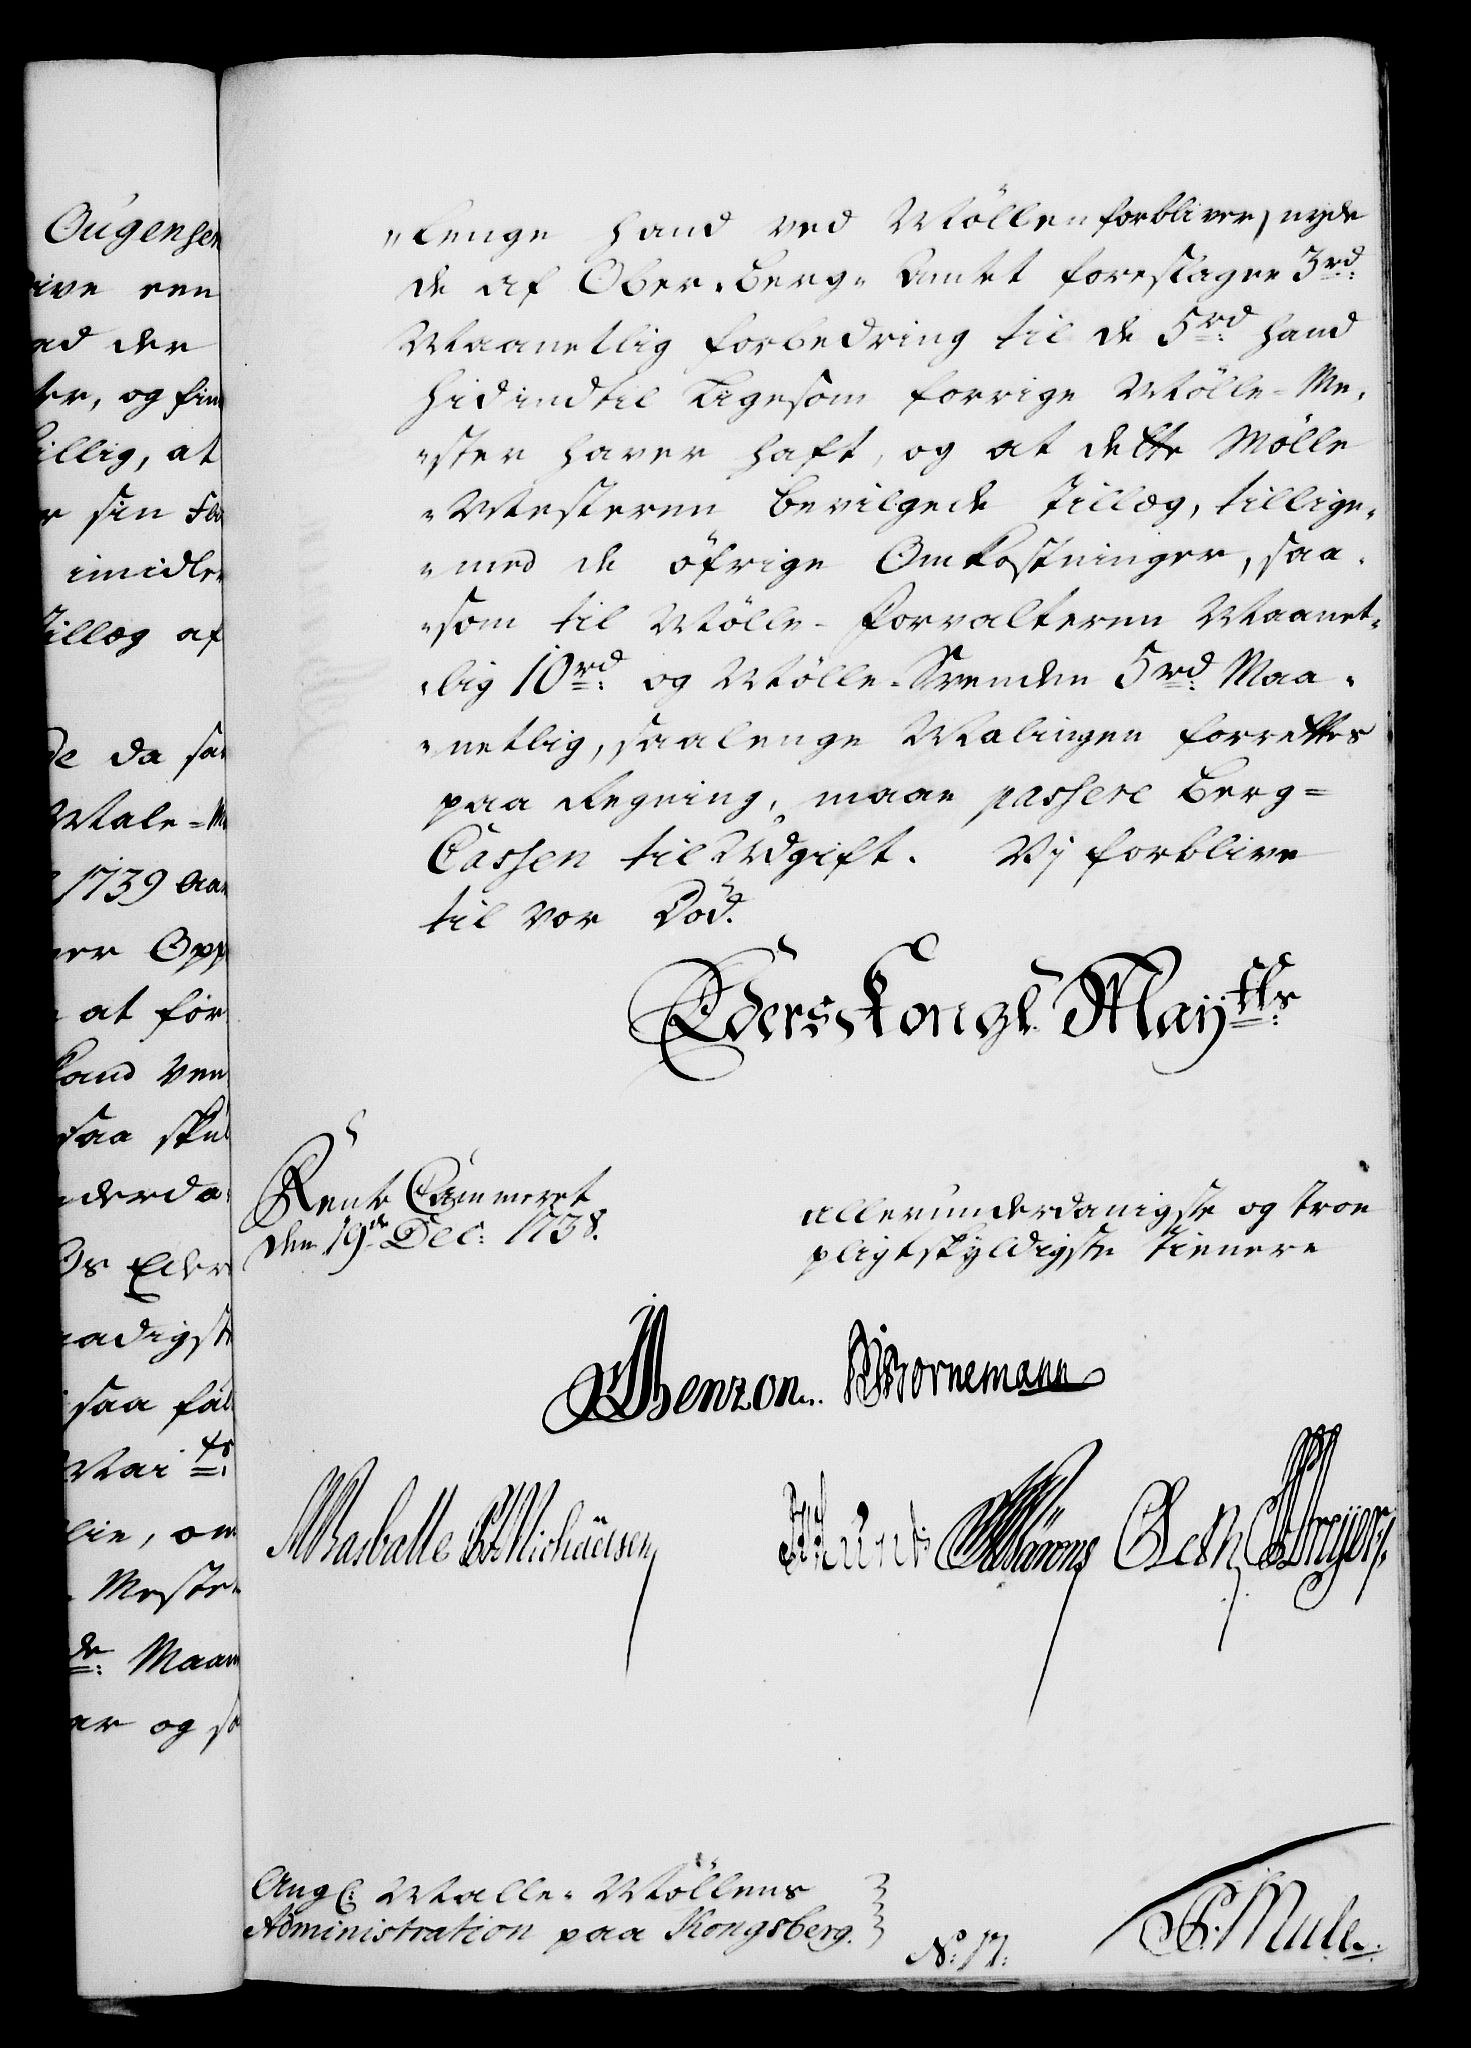 Oúgensen
ive een
ad der
ter, og fin
billig, at
r sin
imidler
Tillæg af
de da saa
Male=M
1739
ner Opp
at for
kand ven
saa skul
nderda
Os Eder
naadigst
saa fal
May ts:
lie, om
Mester
de: Maan
er og so
"lenge hand ved Möllen forbliver, nyde
de af Ober-Berg-Amtet foreslagne 3 rd:
Maanetlig forbedring til de 5 rd: hand
hidindtil ligesom forrige Mölle-Me,
"ster haver haft, og at dette Mölle
"Mesteren bevilgede Tillæg, tillige,
"med de öfrige Omkostninger, saa,
"som til Mölle-Forvalteren Maanet,
"lig 10 rd: og Mölle-Svenden 5 rd: Maa,
"netlig, saalenge Malingen forrettes
paa Regning, maae passere Berg=
Cassen til Udgift. Vj forblive
til vor Död.
Eders Kongl. Mayts:
Rente Cammeret
den 19de Dec: 1738.
allerunderdanigste og troe
pligtskyldigste tienere
Benzon. Bornemann
Rasballe Michäelsen
Ang: Malle-Möllens
Administration paa Kongsberg.
No: 17:
Mule.